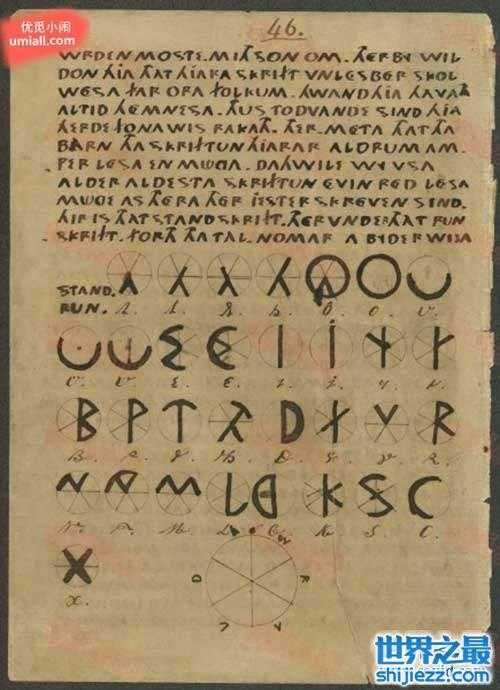 优觅小闹
umiall.com
46.
WRDEN MOSTE. MITH SON OM. THÊR BY WIL
DON HJA THÀT HJARA SKRIFT VNLESBER SKOL
WESA FAR ORA FOLKUM. HWAND HJA HAVATH
ALTID HEMNESA. THUS TODVANDE SIND HJA
HERDE FON A WIS RAKATH. THÊR. META THAT THA
BÀRN THA SKRIFTUN HJARAR ALDRUM AM.
PER LESA EN MUGA. DAHWILE WY VSA
ALDER ALDESTA SKRIFTUN EVIN RED LESA
MUGE AS THÊRA THÊR JESTER SKREVEN SIND.
HIR IS THÀT STAND SKRIFT. THÊRUNDER THÀT RUN
SKRIFT. FORTH THA TAL. NOMAR A BYDER WISA
STAND.
RUN.
O. U.
E. I.
B P T D F V R
B. P. D. V. R.
N M L K S C
N. M. L. K. S. C.
X
x.
世界之最
shijiezz.com